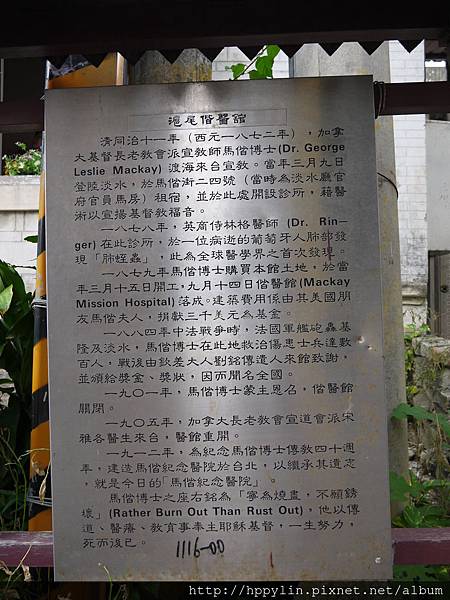 滬尾偕醫館
清同治十一年(西元一八七二年),加拿
大基督長老教會派宣教師馬偕博士(Dr. George
Leslie Mackay) 渡海來台宣教。當年三月九日
登陸淡水,於馬偕街二四號(當時為淡水廳官
府官員馬房)租宿,並於此處開設診所,藉醫
術以宣揚基督教福音。
一八七八年,英商侍林格醫師 (Dr. Rin—
ger) 在此診所,於一位病逝的葡萄牙人肺部發
現「肺蛭蟲」,此為全球醫學界之首次發現。
一八七九年馬偕博士購買本館土地,於當
年三月十五日開工,九月十四日偕醫館(Mackay
Mission Hospital) 落成。建築費用係由其美國朋
友馬偕夫人,捐獻三千美元為基金。
一八八四年中法戰爭時,法國軍艦砲轟基
隆及淡水,馬偕博士在此地救治傷患士兵達數
百人,戰後由欽差大人劉銘傳遣人來館致謝,
並頒給獎金、獎狀,因而聞名全國。
一九〇一年,馬偕博士蒙主恩召,偕醫館
關閉。
一九〇五年,加拿大長老教會宣道會派宋
雅各醫生來台,醫館重開。
一九一二年,為紀念馬偕博士傳教四十週
年,建造馬偕紀念醫院於台北,以繼承其遺志
,就是今日的「馬偕紀念醫院」。
馬偕博士之座右銘為「寧為燒盡,不願銹
壞」(Rather Burn Out Than Rust Out),他以傳
道、醫療、教育事奉主耶穌基督,一生努力,
死而後已。
1116-00
http://hppylin.pixnet.net/album